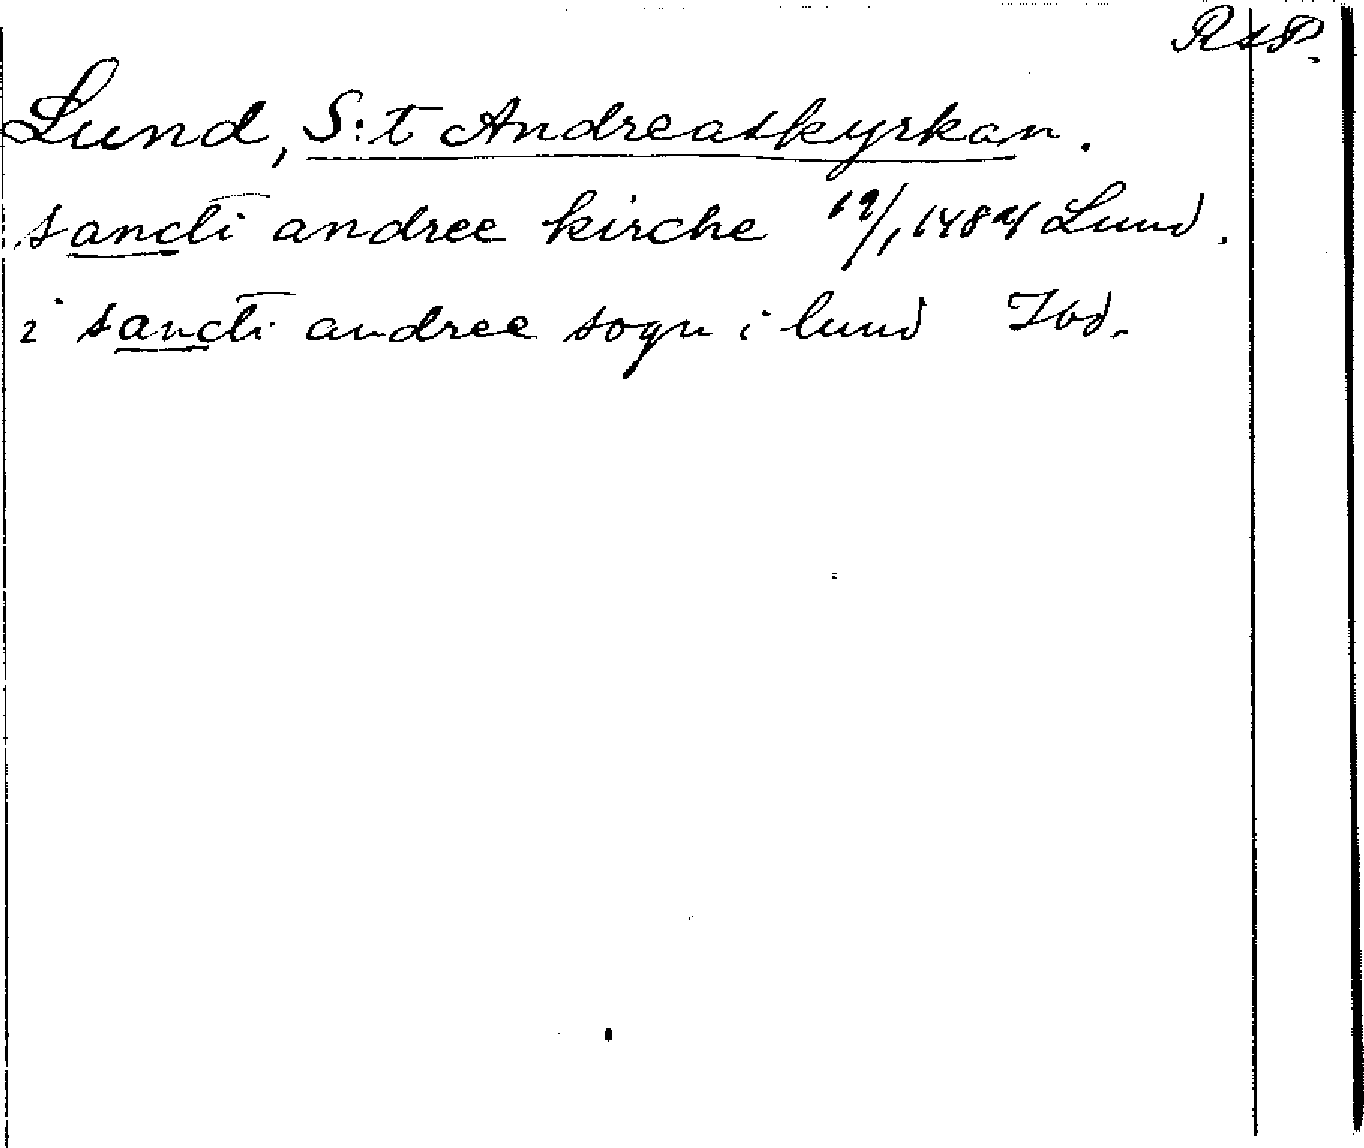 RAP.
Lund, S:t Andreaskyrkan.
sancti andree kirche 19/1 1484 Lund.
i sancti andree sogn i lund Ibd.